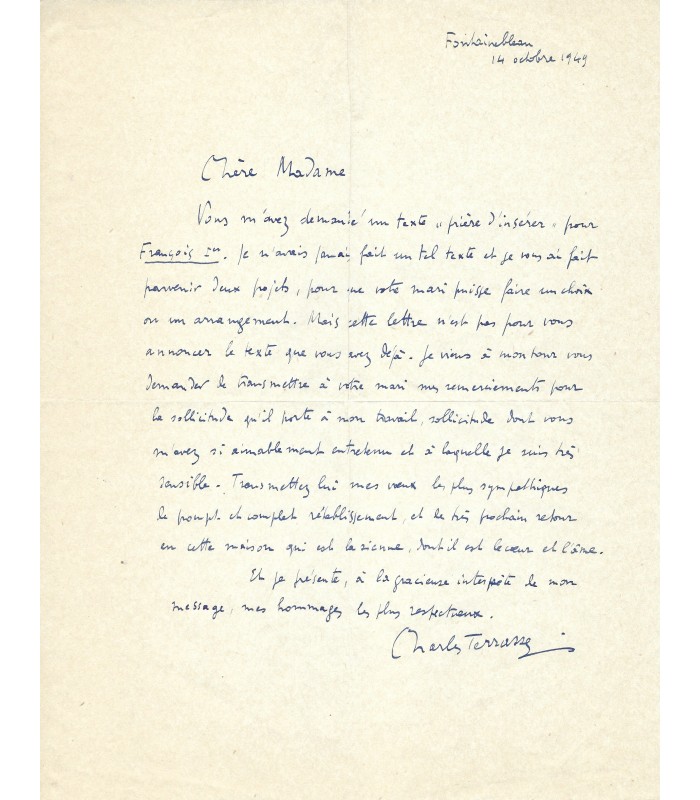 Fontainebleau
14 octobre 1949
Chère Madame
Vous m'avez demandé un texte „ prière d'insérer „ pour
François Ier. Je n'avais jamais fait un tel texte et je vous ai fait
parvenir deux projets, pour que votre mari puisse faire un choix
ou un arrangement. Mais cette lettre n'est pas pour vous
annoncer le texte que vous avez déjà. Je viens à mon tour vous
demander de transmettre à votre mari mes remerciements pour
la sollicitude qu'il porte à mon travail, sollicitude dont vous
m'avez si aimablement entretenu et à laquelle je suis très
sensible. Transmettez lui mes vœux les plus sympathiques
de prompt et complet rétablissement, et de très prochain retour
en cette maison qui est la sienne, dont il est le cœur et l'âme.
Et je présente, à la gracieuse interprète de mon
message, mes hommages les plus respectueux.
Charles Terrasse